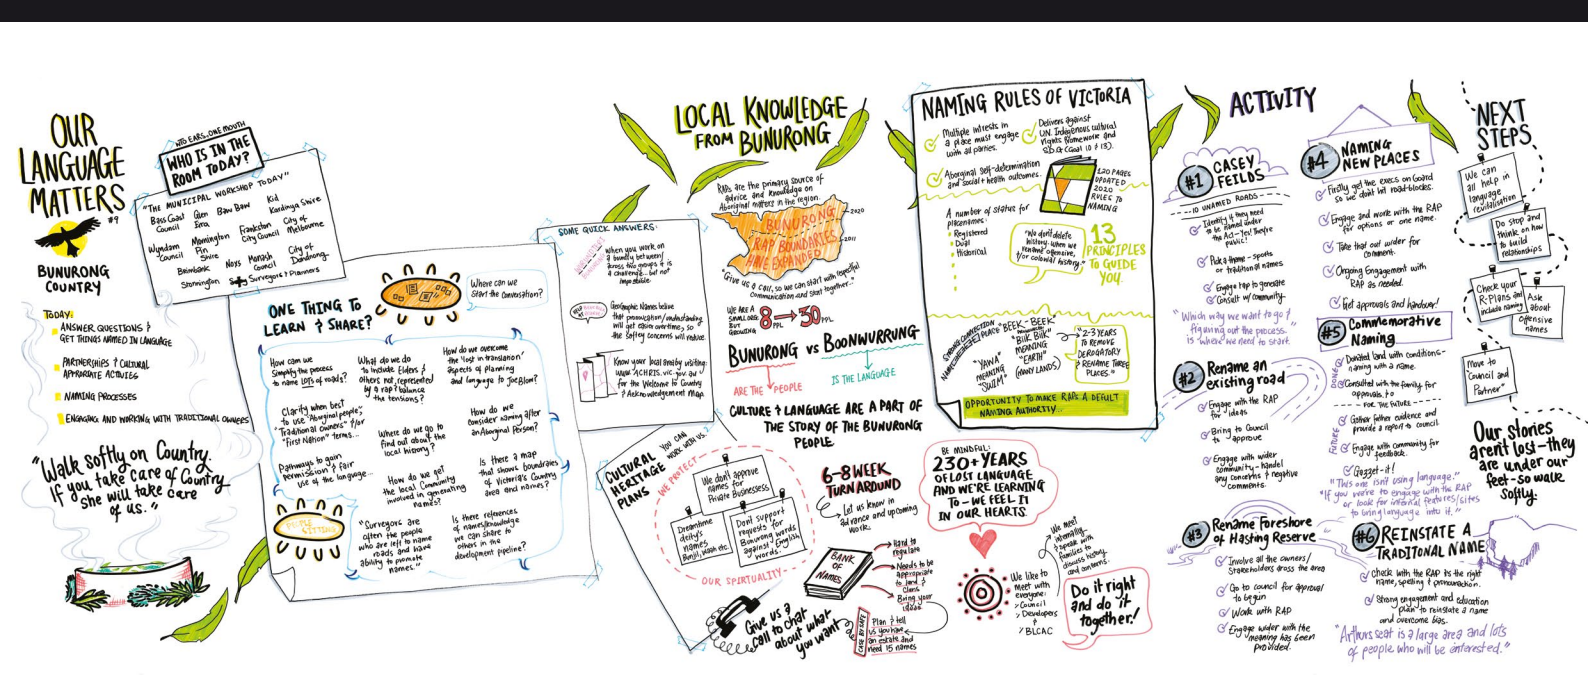 OUR
LANGUAGE
MATTERS
#9
BUNURONG
COUNTRY
TODAY:
ANSWER QUESTIONS &
GET THINGS NAMED IN LANGUAGE
PARTNERSHIPS & CULTURAL
NAMING PROCESSES
ENGAGING AND WORKING WITH TRADITIONAL OWNERS
"Walk softly on Country.
If you take care of Country
she will take care
of us."
TWO EARS, ONE MOUTH
WHO IS IN THE
ROOM TODAY?
"THE MUNICIPAL WORKSHOP TODAY"
Bass Coast
Council
Glen
Eira
Baw Baw
Kid
Kardinya Shire
Wyndam
Council
Mornington
Pin
Shire
Frankston
City Council
City of
Melbourne
Brimbank
Monash
Council
City of
Dandenong
Stonnington
Surveyors & Planners
ONE THING TO
LEARN & SHARE?
Where can we
Start the conversation?
How can we
Simplify the process
to name LOTS of roads?
What do we do
to include Elders &
others not represented
by a rap & balance
the tensions?
How do we overcome
the 'lost in translation'
aspects of planning
and language to Joe Blow?
Clarify when best
to use "Aboriginal people,"
"Traditional owners" &/or
"First Nation" terms...
Where do we go to
find out about the
local history?
How do we
consider naming after
an Aboriginal Person?
Pathways to gain
permission & fair
use of the language...
How do we get
the local Community
involved in generating
names?
Is there a map
that shows boundaries
of Victoria's Country
area and names?
"Surveyors are
often the people
who are left to name
roads and have
ability to promote
names."
Is there references
of names/knowledge
we can share to
others in the
development pipeline?
SOME QUICK ANSWERS:
when you work on
a bundly between/
across two groups it is
a challenge... but not
impossible.
Geographic Names believe
that pronunciation/understanding
will get easier overtime, so
the safety concerns will reduce.
Know your local area by visiting:
www.ACHRIS.vic.gov.au
for the Welcome to Country
& Acknowledgement Map
LOCAL KNOWLEDGE
FROM BUNURONG
RAPs are the primary source of
advice and knowledge on
Aboriginal matters in the region.
BUNURONG
RAP BOUNDARIES
HAVE EXPANDED
2020
2011
"Give us a call, so we can start with respectful
communication and start together..."
WE ARE A
SMALL ORG
BUT
GROWING
8 PPL → 30 PPL
BUNURONG vs BOONWURRUNG
ARE THE PEOPLE
IS THE LANGUAGE
CULTURE & LANGUAGE ARE A PART OF
THE STORY OF THE BUNURONG
PEOPLE
CULTURAL
HERITAGE
PLANS
YOU CAN
WORK WITH US
WE PROTECT
We don't approve
names for
Private Businessess
Dreamtime
deity's
names
Bunjil, Waak etc.
Don't support
requests for
Bunurong words
against English
words.
OUR SPIRTUALITY
6-8 WEEK
TURNAROUND
Let us know in
advance and upcoming
work.
BANK
OF
NAMES
Hard to
regulate
Needs to be
appropriate
to land &
Clans
Bring your
ideas
Give us a
call to chat
about what
you want
CASE BY CASE
Plan & tell
us you have
an estate and
need 15 names
BE MINDFUL:
230+ YEARS
OF LOST LANGUAGE
AND WE'RE LEARNING
TO - WE FEEL IT
IN OUR HEARTS.
We like to
meet with
everyone:
> Council
> Developers
&
> BLCAC
We meet
internally
& speak with
families to
discuss history
and concerns.
Do it right
and do it
together!
NAMING RULES OF VICTORIA
Multiple intrests in
a place must engage
with all parties.
Delivers against
UN. Indigenous cultural
rights framework and
S.D.G (Goal 10 & 13).
Aboriginal self-determination
and social & health outcomes.
120 PAGES
UPDATED
2020
RULES TO
NAMING
A number of Status for
placenames:
Registered
Dual
Historical
"We don't delete
history - when we
rename offensive,
&/or colonial history."
13
PRINCIPLES
TO GUIDE
YOU.
STRONG CONNECTION
"YAWA"
MEANING
"SWIM"
"BEEK-BEEK"
"BIIK BIIK"
MEANING
"EARTH"
(MANY LANDS)
"2-3 YEARS
TO REMOVE
DEROGATORY
& RENAME THREE
PLACES."
OPPORTUNITY TO MAKE RAPs A DEFULT
NAMING AUTHORITY...
ACTIVITY
#1 CASEY
FEILDS
10 UNAMED ROADS
Identify if they need
to be named under
the Act - Yes! They're
public!
Pick a theme - sports
or traditional names
Engage rap to generate
Consult w/ community
"Which way we want to go &
figuring out the process.
is where we need to start.
#2 Rename an
existing road
Engage with the RAP
for ideas
Bring to Council
to approve
Engage with wider
community - handel
any concerns & negative
comments.
#3 Rename Foreshore
of Hasting Reserve
Involve all the owners/
Stakeholders aross the area
Go to council for approval
to begin
Work with RAP
Engage wider with the
meaning has been
provided.
#4 NAMING
NEW PLACES
Firstly get the execs on board
so we don't hit road-blocks.
Engage and work with the RAP
for options or one name.
Take that out wider for
comment.
Ongoing Engagement with
RAP as needed.
Get approvals and handover!
#5 Commemorative
Naming
DONATED
Donated land with conditions -
naming with a name.
Consulted with the family for
approvals, &o
FOR THE FUTURE
FUTURE
Gather father evidence and
provide a report to council.
Engage with community for
feedback.
Gazzet-it!
"This one isn't using language."
"If you were to engage with the RAP
or look for internal features/sites
to bring language into it."
#6 REINSTATE A
TRADITONAL NAME
Check with the RAP its the right
name, spelling & pronounciation.
Strong engagement and education
plan to reinstate a name
and overcome bias.
"Arthurs seat is a large area and lots
of people who will be interested."
NEXT
STEPS
We can
all help in
language
revitalisation
Do stop and
think on how
to build
relationships
Check your
R-Plans and
include naming
Ask
about
offensive
names
Move to
"Council and
Partner"
Our stories
arent lost - they
are under our
feet - so walk
softly.